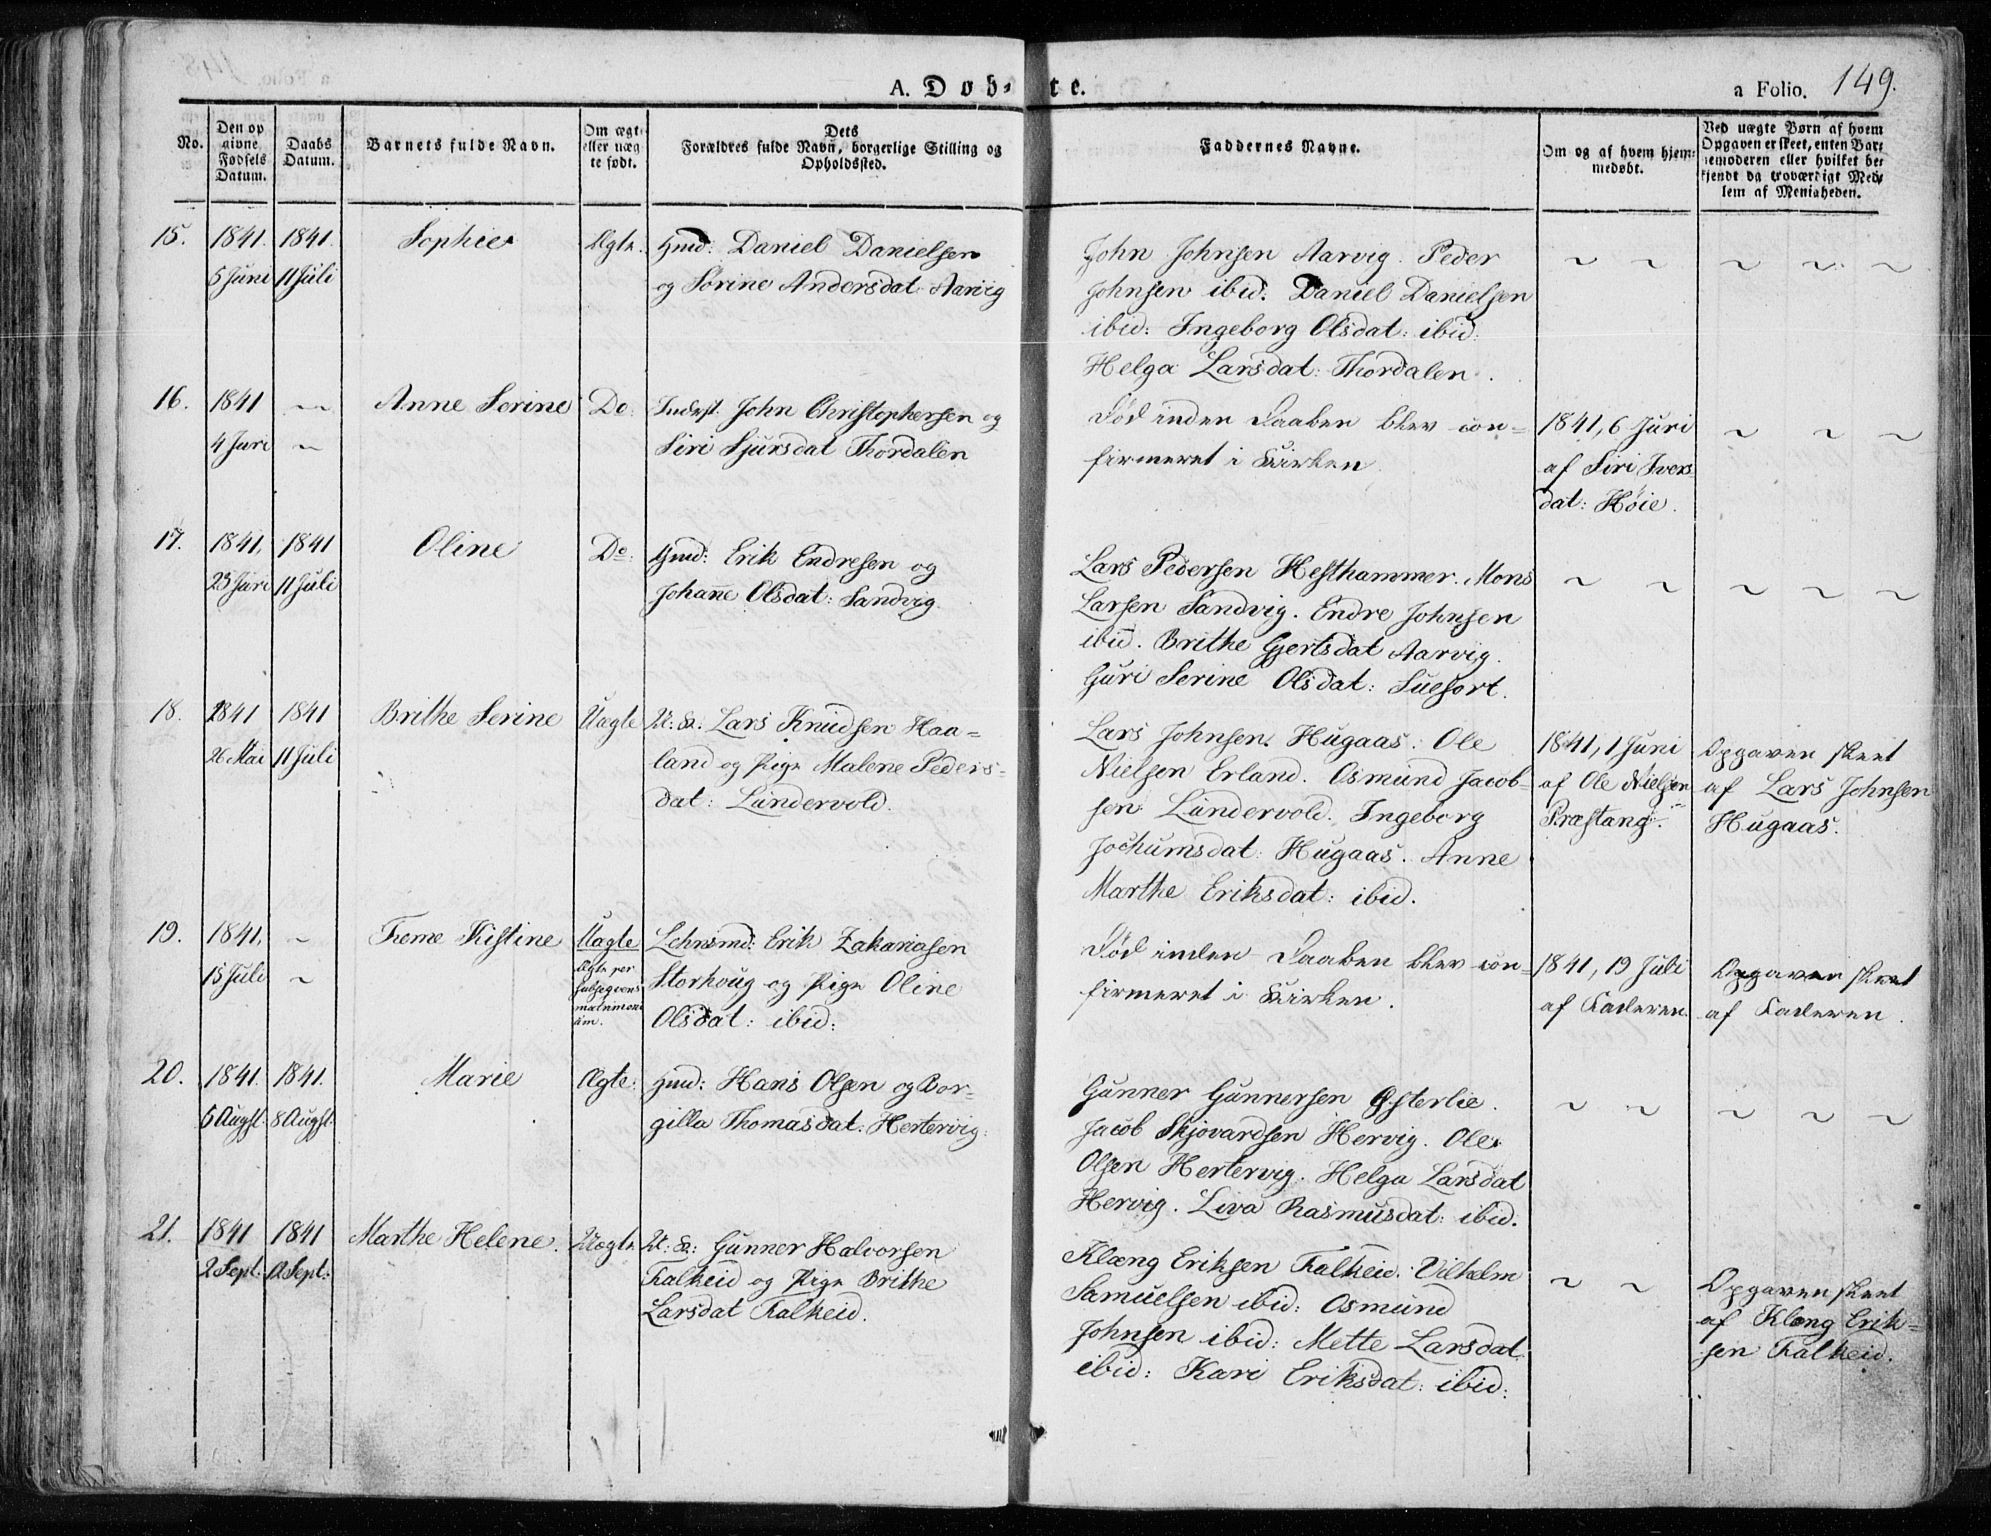 A. Døb- te.
a Folio. 149.
No.
Den op
givne
Fødsels
Datum.
Daabs
Datum.
Barnets fulde Navn.
Om ægt-
eller uæg
te født.
Dets
Forældres fulde Navn, borgerlige Stilling og
Opholdssted.
Faddernes Navne.
Om og af hvem hjem-
medøbt.
Ved uægte Børn af hvem
Opgaven er skeet, enten Bar-
nemoderen eller hvilket be
kjendt og troværdigt Med-
lem af Menigheden.
15. 1841 1841. Sophie Ægte. Gmd: Daniel Danielsen
5 Juni 11 Juli og Sørine Andersdat: Aarvig
John Johnsen Aarvig. Peder
Johnsen ibid. Daniel Danielsen
ibid: Ingeborg Olsdat: ibid.
Helga Larsdat: Thordalen.
~ ~ ~ ~ ~
16. 1841 ~ Anne Serine Do: Inderst. John Christophersen og
4 Juni ~ Siri Sjursdat Thordalen
Død inden Daaben blev con-
firmeret i Kirken.
1841, 6 Juni
af Siri Ivers
dat: Høie.
~ ~ ~
17. 1841, 1841 Oline Do: Gmd: Erik Endresen og
23 Juni 11 Juli Johanne Olsdat: Sandvig.
Lars Pedersen Hesthammer. Mons
Larsen Sandvig. Endre Johnsen
ibid. Brithe Gjertsdat Aarvig.
Guri Serine Olsdat: Suefort.
~ ~ ~ ~ ~
18. 1841 1841 Brithe Serine Uægte U: K: Lars Knudsen Haa-
26 Mai 11 Juli land og Pige Malene Peders-
dat: Lundervold.
Lars Johnsen. Hugaas. Ole
Nielsen Erland. Osmund Jacob-
sen Lundervold. Ingeborg
Jochumsdat: Hugaas. Anne
Marthe Eriksdat: ibid.
1841, 1 Juni
af Ole Nielsen
Præstang.
Opgaven skeet
af Lars Johnsen
Hugaas.
19. 1841, ~ Trene Kistine Uægte Lehnsmd: Erik Zakariasen
15 Juli ~ Ægte per
subseqvens
matrimoni
um.
Storhoug og Pige Oline
Olsdat: ibid:
Død inden Daaben blev con-
firmeret i Kirken.
1841, 19 Juli
af Faderen.
Opgaven skeet
af Faderen.
20. 1841. 1841. Marie Ægte. Gmd: Hans Olsen og Bor-
5 Augst. 8 Augst. gilla Thomasdat: Hertervig.
Gunner Gunnersen Østerlie.
Jacob Skjovardsen Hervig. Ole
Olsen Hertervig. Helga Larsdat
Hervig. Liva Rasmusdat: ibid.
~ ~ ~ ~ ~
21. 1841 1841 Marthe Helene. Uægte U: K: Gunner Halvorsen
2 Sept: 12 Sept: Falkeid og Pige Brithe
Larsdat Falkeid.
Klæng Eriksen Falkeid. Vilhelm
Samuelsen ibid: Osmund
Johnsen ibid: Mette Larsdat
ibid: Kari Eriksdat: ibid:
~ ~
Opgaven skeet
af Klæng Erik-
sen Falkeid.